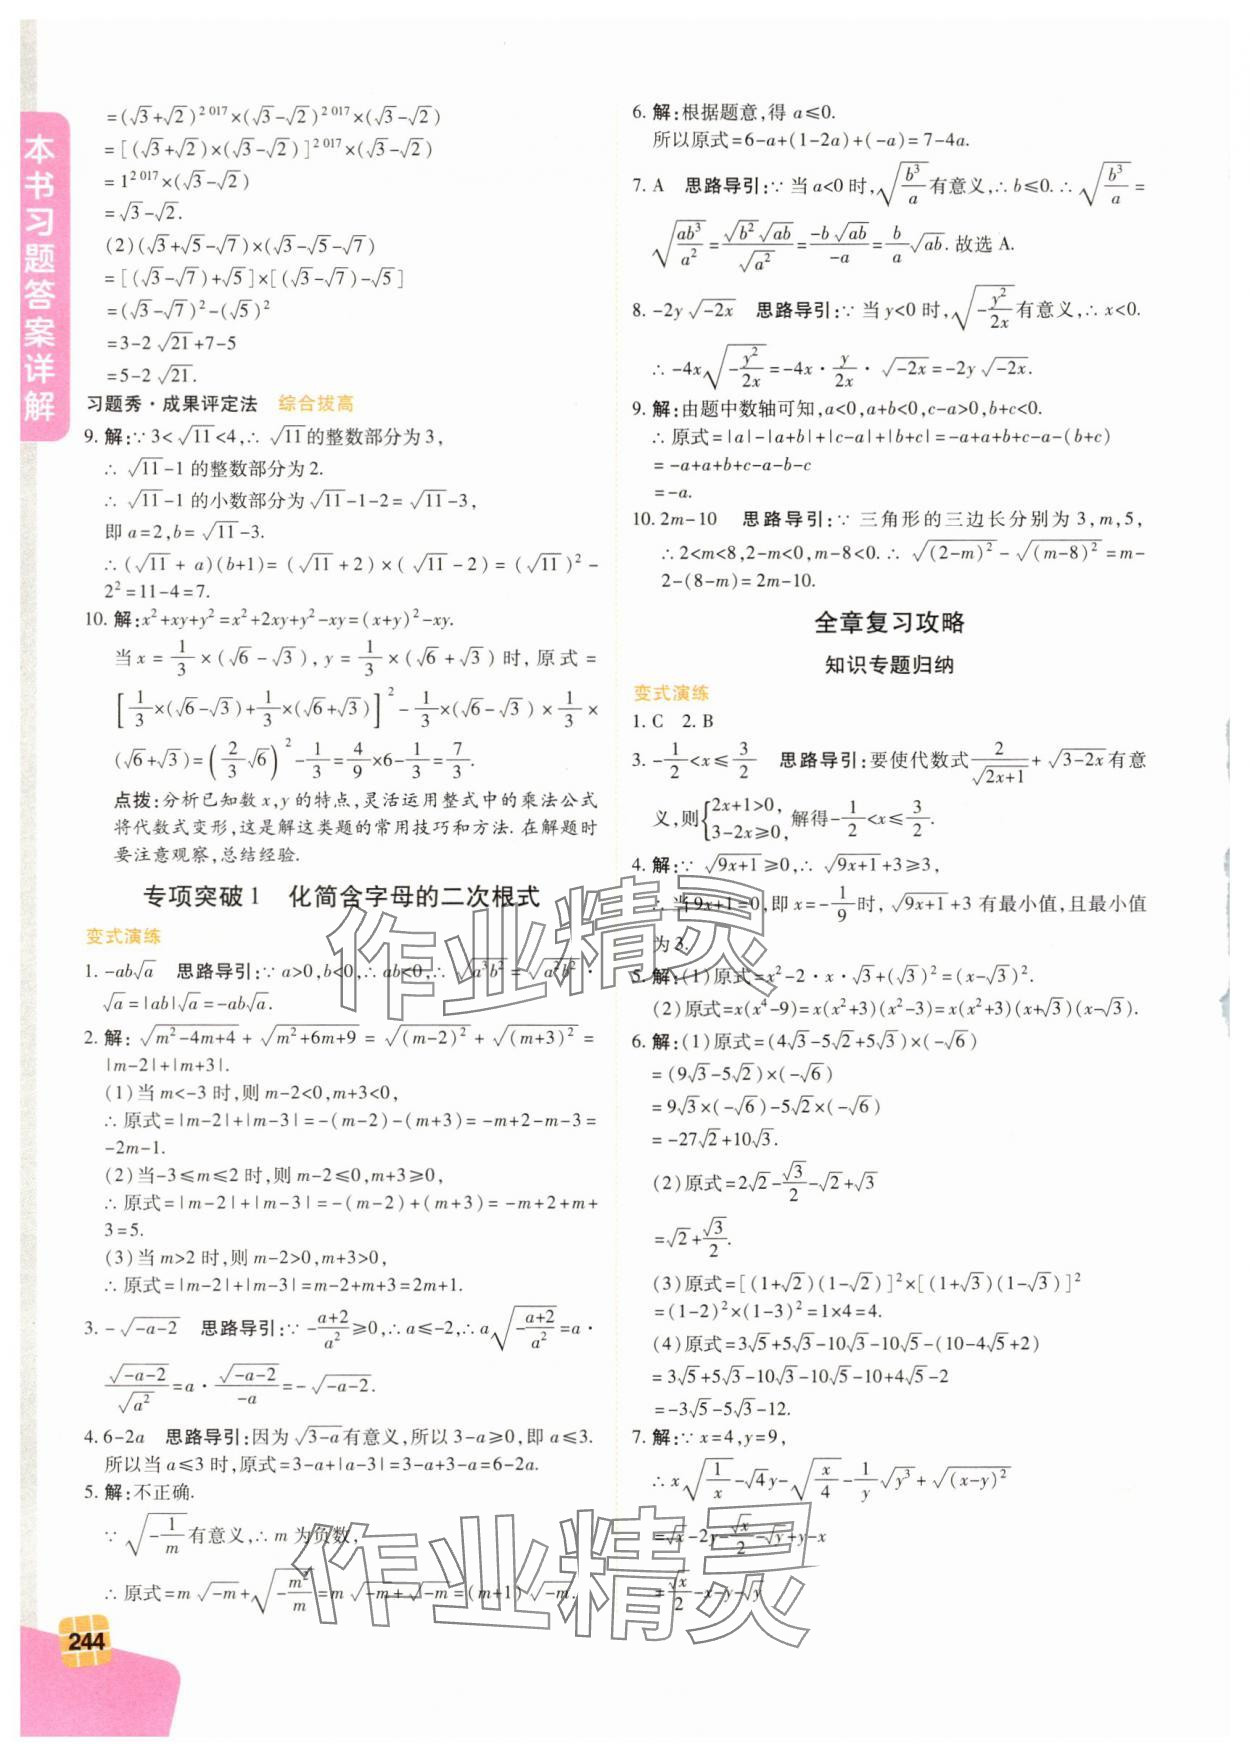 本书习题答案详解
=(√3+√2)^2 017×(√3-√2)^2 017×(√3-√2)
=[(√3+√2)×(√3-√2)]^2 017×(√3-√2)
=1^2 017×(√3-√2)
=√3-√2.
(2)(√3+√5-√7)×(√3-√5-√7)
=[(√3-√7)+√5]×[(√3-√7)-√5]
=(√3-√7)²-(√5)²
=3-2√21+7-5
=5-2√21.
习题秀·成果评定法 综合拔高
9. 解:∵3<√11<4,∴√11的整数部分为3,
∴√11-1的整数部分为2.
∴√11-1的小数部分为√11-1-2=√11-3,
即a=2,b=√11-3.
∴(√11+a)(b+1)=(√11+2)×(√11-2)=(√11)²-
2²=11-4=7.
10. 解:x²+xy+y²=x²+2xy+y²-xy=(x+y)²-xy.
当x=1/3×(√6-√3),y=1/3×(√6+√3)时,原式=
[1/3×(√6-√3)+1/3×(√6+√3)]²-1/3×(√6-√3)×1/3×
(√6+√3)=(2/3√6)²-1/3=4/9×6-1/3=7/3.
点拨:分析已知数x,y的特点,灵活运用整式中的乘法公式
将代数式变形,这是解这类题的常用技巧和方法.在解题时
要注意观察,总结经验.
专项突破1 化简含字母的二次根式
变式演练
1. -ab√a 思路导引:∵a>0,b<0,∴ab<0,∴√(a³b²)=√(a²b²)·
√a=|ab|√a=-ab√a.
2. 解:√(m²-4m+4)+√(m²+6m+9)=√((m-2)²)+√((m+3)²)=
|m-2|+|m+3|.
(1)当m<-3时,则m-2<0,m+3<0,
∴原式=|m-2|+|m-3|=-(m-2)-(m+3)=-m+2-m-3=
-2m-1.
(2)当-3≤m≤2时,则m-2≤0,m+3≥0,
∴原式=|m-2|+|m-3|=-(m-2)+(m+3)=-m+2+m+
3=5.
(3)当m>2时,则m-2>0,m+3>0,
∴原式=|m-2|+|m-3|=m-2+m+3=2m+1.
3. -√(-a-2) 思路导引:∵-(a+2)/a²≥0,∴a≤-2,∴a√(-(a+2)/a²)=a·
√(-a-2)/√(a²)=a·√(-a-2)/(-a)=-√(-a-2).
4. 6-2a 思路导引:因为√(3-a)有意义,所以3-a≥0,即a≤3.
所以当a≤3时,原式=3-a+|a-3|=3-a+3-a=6-2a.
5. 解:不正确.
∵√(-1/m)有意义,∴m为负数,
∴原式=m√(-m)+√(-m²/m)=m√(-m)+√(-m)=(m+1)√(-m).
244
6. 解:根据题意,得a≤0.
所以原式=6-a+(1-2a)+(-a)=7-4a.
7. A 思路导引:∵当a<0时,√(b³/a)有意义,∴b≤0.∴√(b³/a)=
√(ab³/a²)=√(b²)√(ab)/√(a²)=-b√(ab)/(-a)=b/a√(ab).故选A.
8. -2y√(-2x) 思路导引:∵当y<0时,√(-y²/2x)有意义,∴x<0.
∴-4x√(-y²/2x)=-4x·y/2x·√(-2x)=-2y√(-2x).
9. 解:由题中数轴可知,a<0,a+b<0,c-a>0,b+c<0.
∴原式=|a|-|a+b|+|c-a|+|b+c|=-a+a+b+c-a-(b+c)
=-a+a+b+c-a-b-c
=-a.
10. 2m-10 思路导引:∵三角形的三边长分别为3,m,5,
∴2<m<8,2-m<0,m-8<0.∴√((2-m)²)-√((m-8)²)=m-
2-(8-m)=2m-10.
全章复习攻略
知识专题归纳
变式演练
1. C 2. B
3. -1/2<x≤3/2 思路导引:要使代数式2/√(2x+1)+√(3-2x)有意
义,则{2x+1>0, 3-2x≥0,解得-1/2<x≤3/2.
4. 解:∵√(9x+1)≥0,∴√(9x+1)+3≥3,
∴当9x+1=0,即x=-1/9时,√(9x+1)+3有最小值,且最小值
为3.
5. 解:(1)原式=x²-2·x·√3+(√3)²=(x-√3)².
(2)原式=x(x⁴-9)=x(x²+3)(x²-3)=x(x²+3)(x+√3)(x-√3).
6. 解:(1)原式=(4√3-5√2+5√3)×(-√6)
=(9√3-5√2)×(-√6)
=9√3×(-√6)-5√2×(-√6)
=-27√2+10√3.
(2)原式=2√2-√3/2-√2+√3
=√2+√3/2.
(3)原式=[(1+√2)(1-√2)]²×[(1+√3)(1-√3)]²
=(1-2)²×(1-3)²=1×4=4.
(4)原式=3√5+5√3-10√3-10√5-(10-4√5+2)
=3√5+5√3-10√3-10√5+4√5-2
=-3√5-5√3-12.
7. 解:∵x=4,y=9,
∴x√(1/x)-√4y-√(x/4)-1/y√(y³)+√((x-y)²)
=√x-2y-√x/2-√y+y-x
=√x/2-x-y-√y
作业精灵
作业精灵